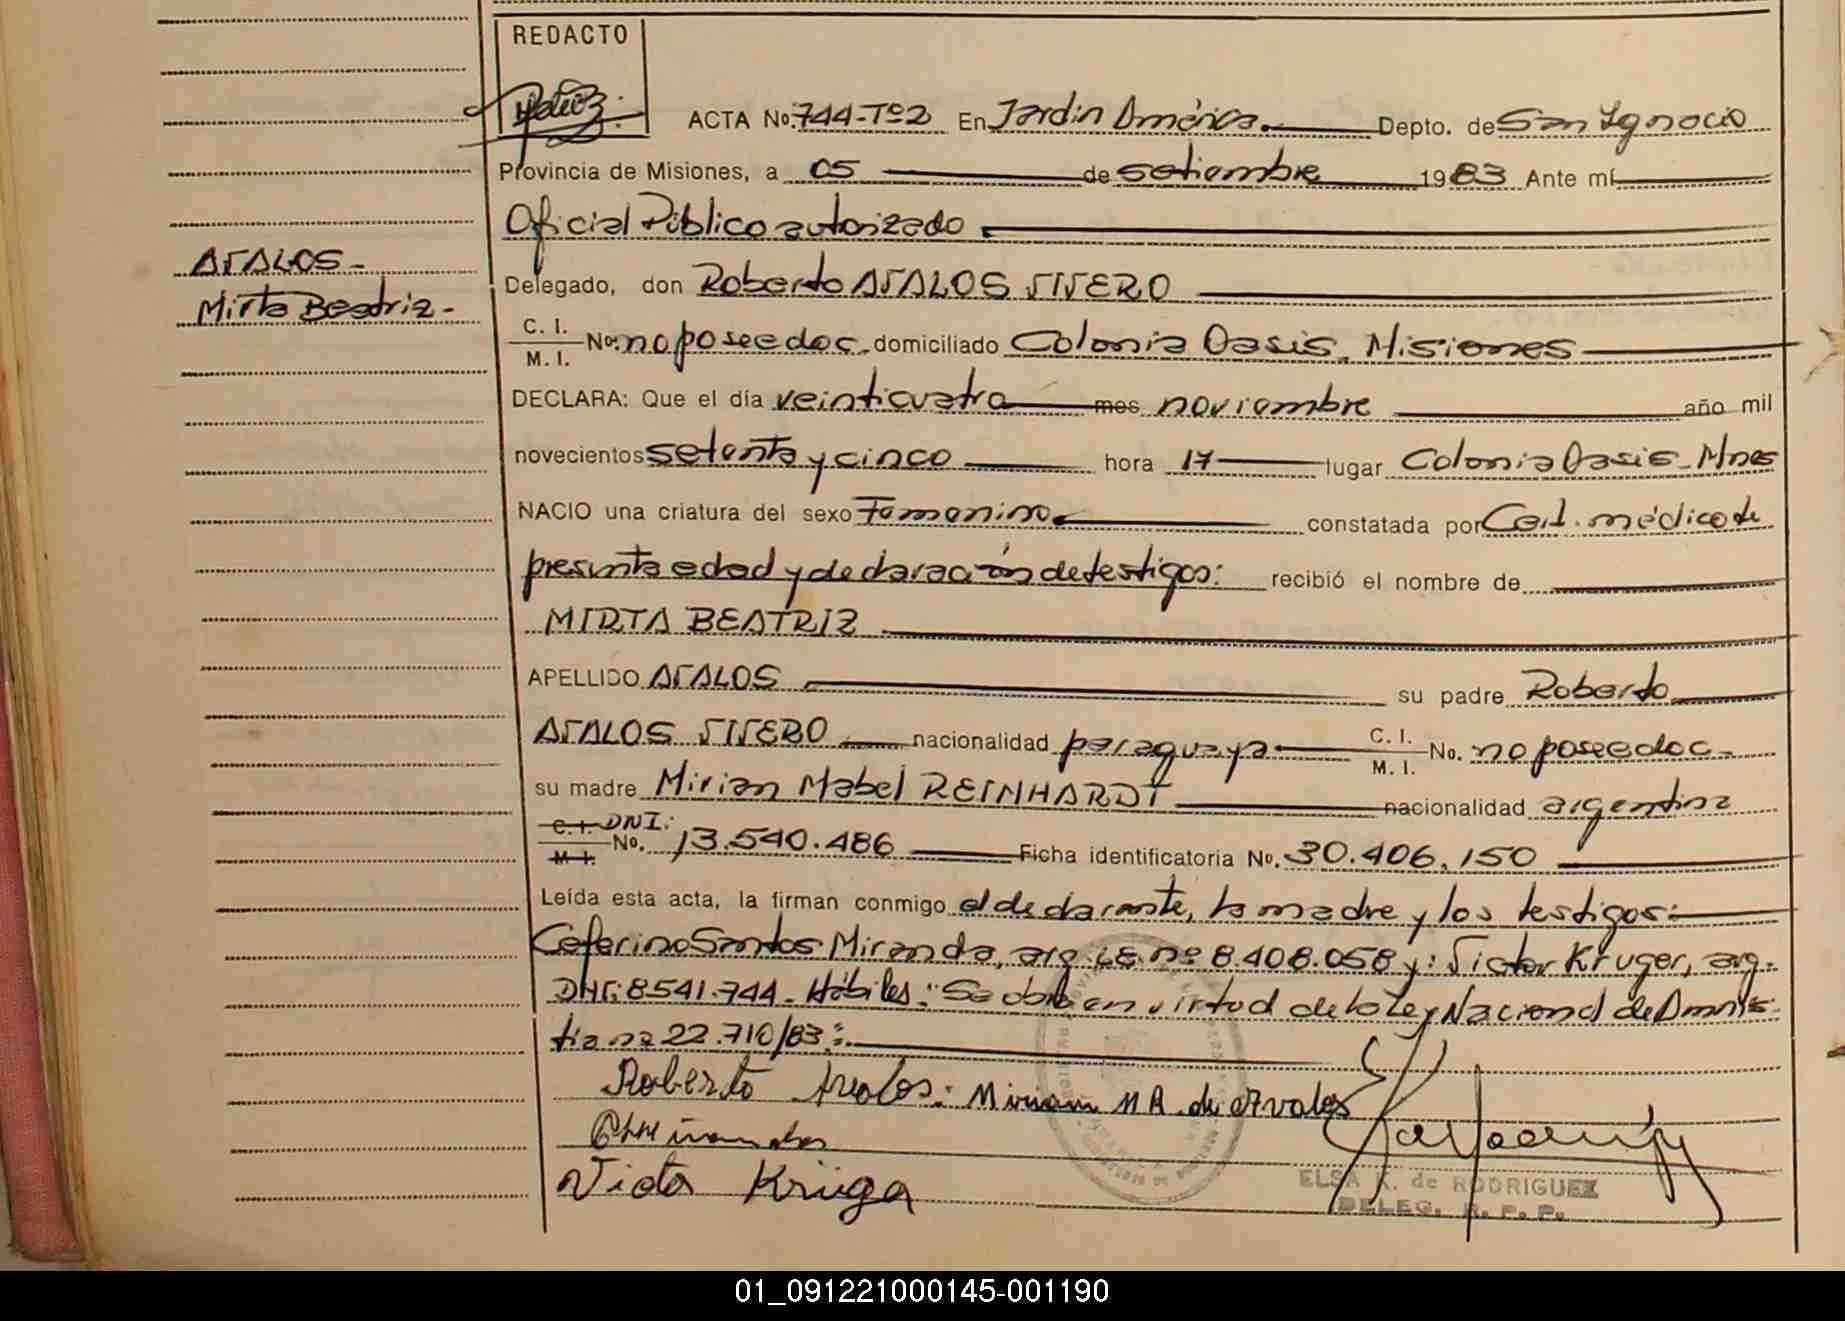 REDACTO
ACTA No. 744-Tº2 En Jardín América. Depto. de San Ignacio
Provincia de Misiones, a 05 de setiembre 1983 Ante mí
Oficial Público autorizado
AVALOS-
Delegado, don Roberto AVALOS VIVERO
Mirta Beatriz-
C. I. M. I. No. no posee doc. domiciliado Colonia Oasis, Misiones
DECLARA: Que el día veinticuatro mes noviembre año mil
novecientos setenta y cinco hora 17 lugar Colonia Oasis-Mnes
NACIO una criatura del sexo Femenino constatada por Cert. médico de
presunta edad y declaración de testigos: recibió el nombre de
MIRTA BEATRIZ
APELLIDO AVALOS su padre Roberto
AVALOS VIVERO nacionalidad paraguaya C. I. M. I. No. no posee doc.
su madre Mirian Mabel REINHARDT nacionalidad argentina
C. I. M. I. DNI: No. 13.540.486 Ficha identificatoria No. 30.406.150
Leída esta acta, la firman conmigo el declarante, la madre y los testigos:
Ceferino Santos Miranda, arg. LE. nº 8.408.058 y: Victor Kruger, arg.
DNI: 8541.744- Hábiles: "Se labra en virtud de la Ley Nacional de Amnis-
tia nº 22.710/83:
Roberto Avalos: Miriam M R. de Avalos
Victor Krüger
ELSA K. de RODRIGUEZ
DELEG. R. P. P.
01_091221000145-001190